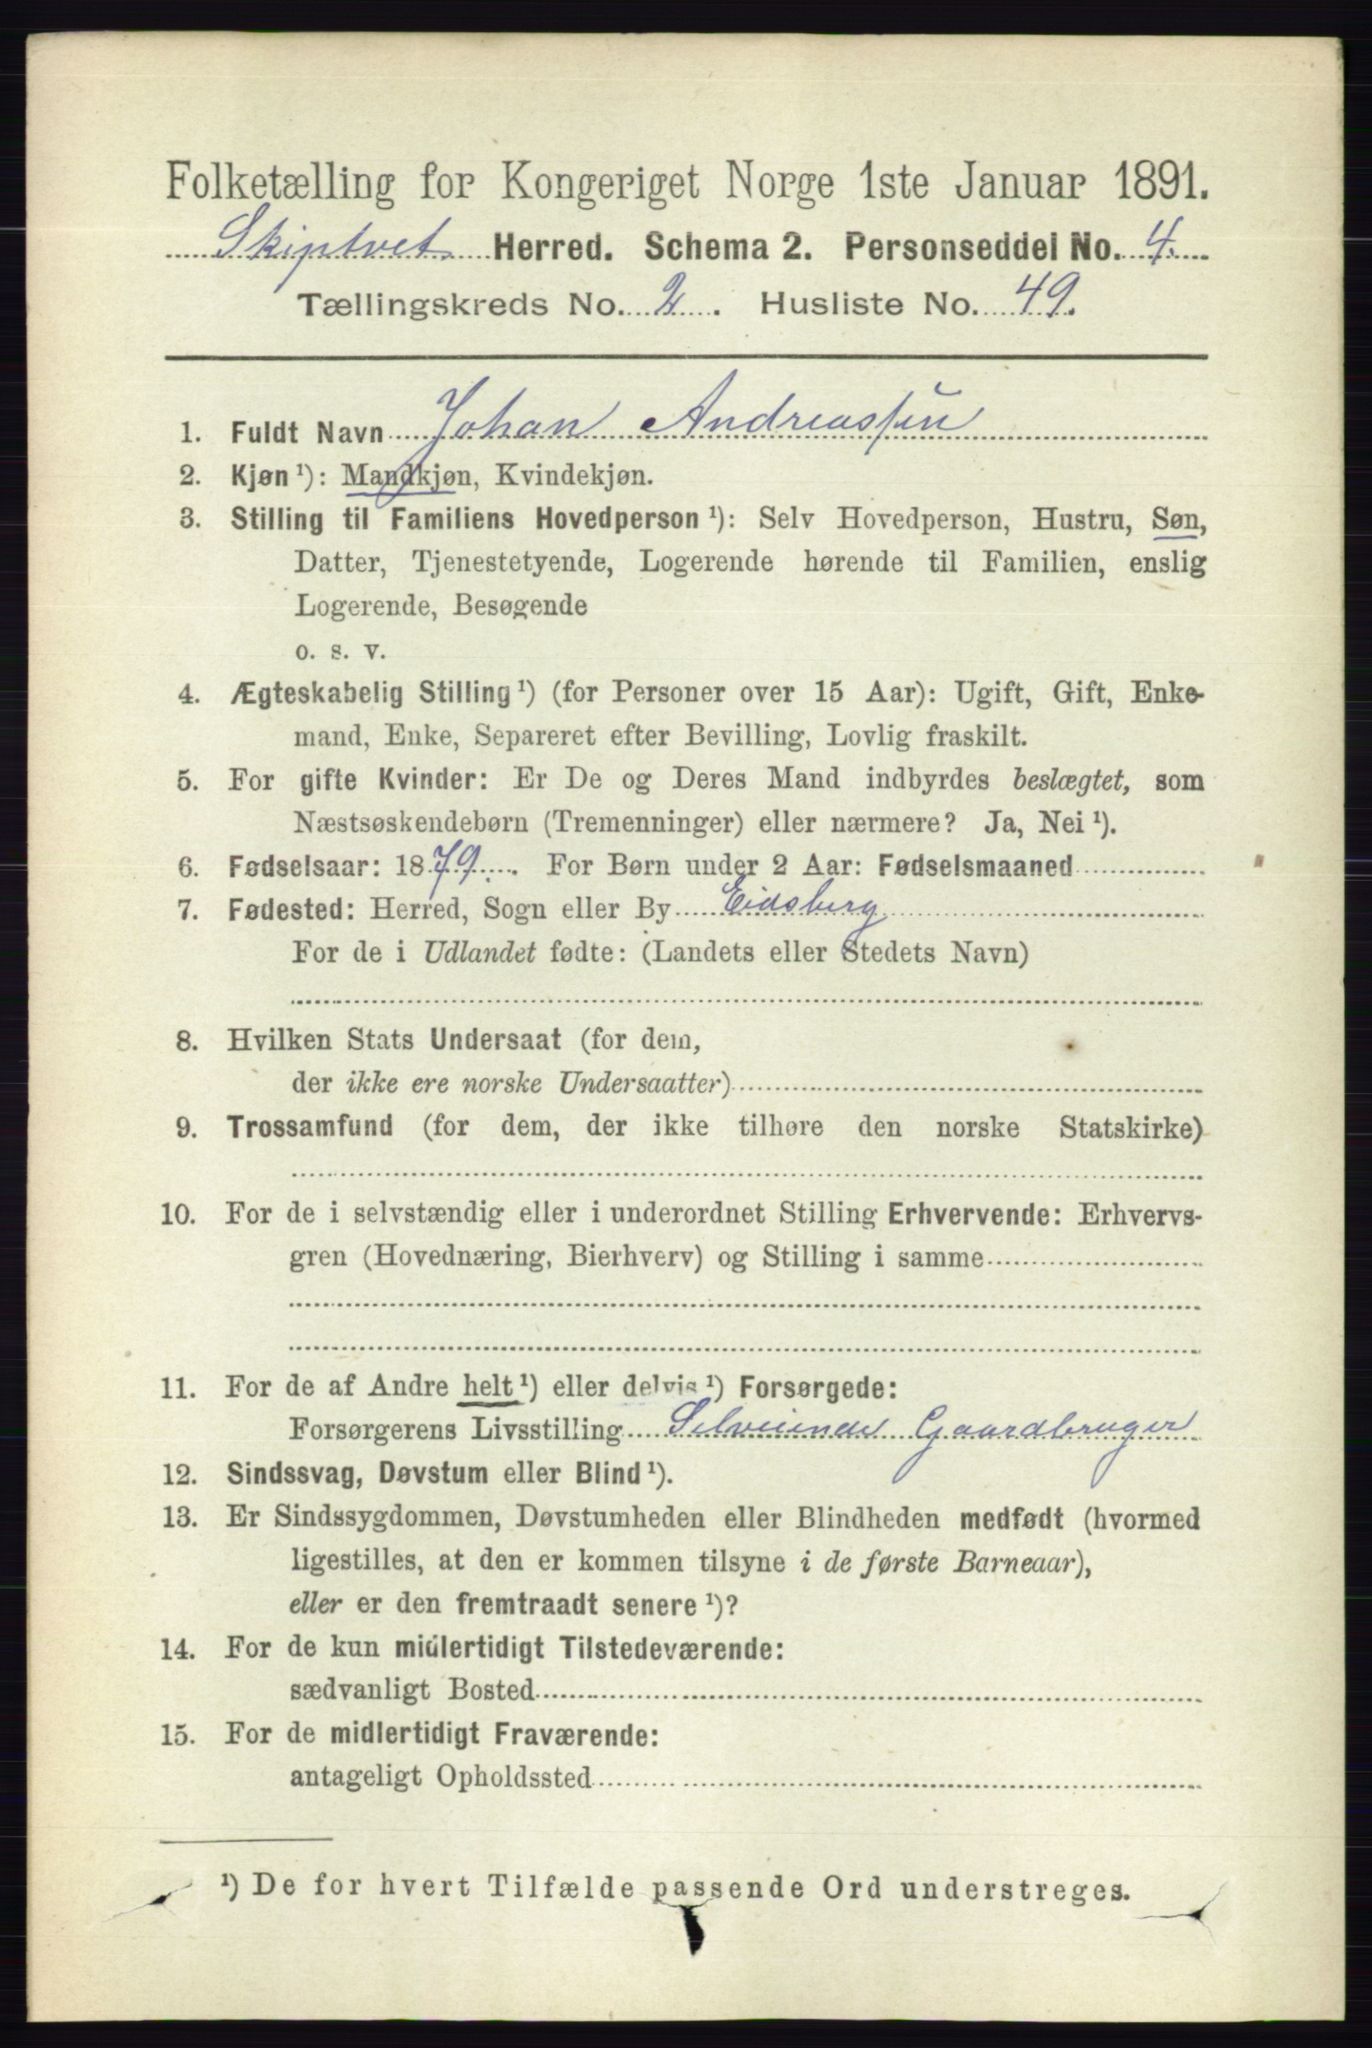 Folketælling for Kongeriget Norge 1ste Januar 1891.
Skiptvet Herred. Schema 2. Personseddel No. 4.
Tællingskreds No. 2. Husliste No. 49.
1. Fuldt Navn Johan Andreassen
2. Kjøn ¹): Mandkjøn, Kvindekjøn.
3. Stilling til Familiens Hovedperson ¹): Selv Hovedperson, Hustru, Søn,
Datter, Tjenestetyende, Logerende hørende til Familien, enslig
Logerende, Besøgende
o. s. v.
4. Ægteskabelig Stilling ¹) (for Personer over 15 Aar): Ugift, Gift, Enke-
mand, Enke, Separeret efter Bevilling, Lovlig fraskilt.
5. For gifte Kvinder: Er De og Deres Mand indbyrdes beslægtet, som
Næstsøskendebørn (Tremenninger) eller nærmere? Ja, Nei ¹).
6. Fødselsaar: 1879. For Børn under 2 Aar: Fødselsmaaned
7. Fødested: Herred, Sogn eller By Eidsberg
For de i Udlandet fødte: (Landets eller Stedets Navn)
8. Hvilken Stats Undersaat (for dem,
der ikke ere norske Undersaatter)
9. Trossamfund (for dem, der ikke tilhøre den norske Statskirke)
10. For de i selvstændig eller i underordnet Stilling Erhvervende: Erhvervs-
gren (Hovednæring, Bierhverv) og Stilling i samme
11. For de af Andre helt ¹) eller delvis ¹) Forsørgede:
Forsørgerens Livsstilling Selveiende Gaardbruger
12. Sindssvag, Døvstum eller Blind ¹).
13. Er Sindssygdommen, Døvstumheden eller Blindheden medfødt (hvormed
ligestilles, at den er kommen tilsyne i de første Barneaar),
eller er den fremtraadt senere ¹)?
14. For de kun midlertidigt Tilstedeværende:
sædvanligt Bosted
15. For de midlertidigt Fraværende:
antageligt Opholdssted
¹) De for hvert Tilfælde passende Ord understreges.